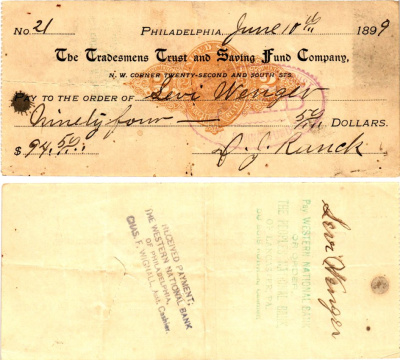 No. 21 PHILADELPHIA, June 10th 1899
The Tradesmens Trust and Saving Fund Company,
N. W. CORNER TWENTY-SECOND AND SOUTH STS.
PAY TO THE ORDER OF Levi Wenger
Ninety four 50/100 DOLLARS.
$ 94.50/100 D. J. Ranck
RECEIVED PAYMENT,
THE WESTERN NATIONAL BANK
OF PHILADELPHIA,
CHAS. F. WIGNALL, Asst. Cashier.
PAY WESTERN NATIONAL BANK
Levi Wenger